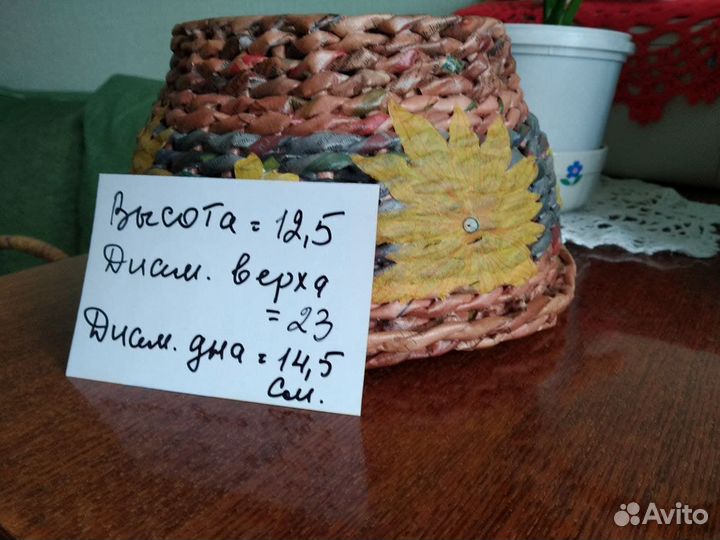 Высота = 12,5
Диам. верха
= 23
Диам. дна = 14,5
см.
Avito